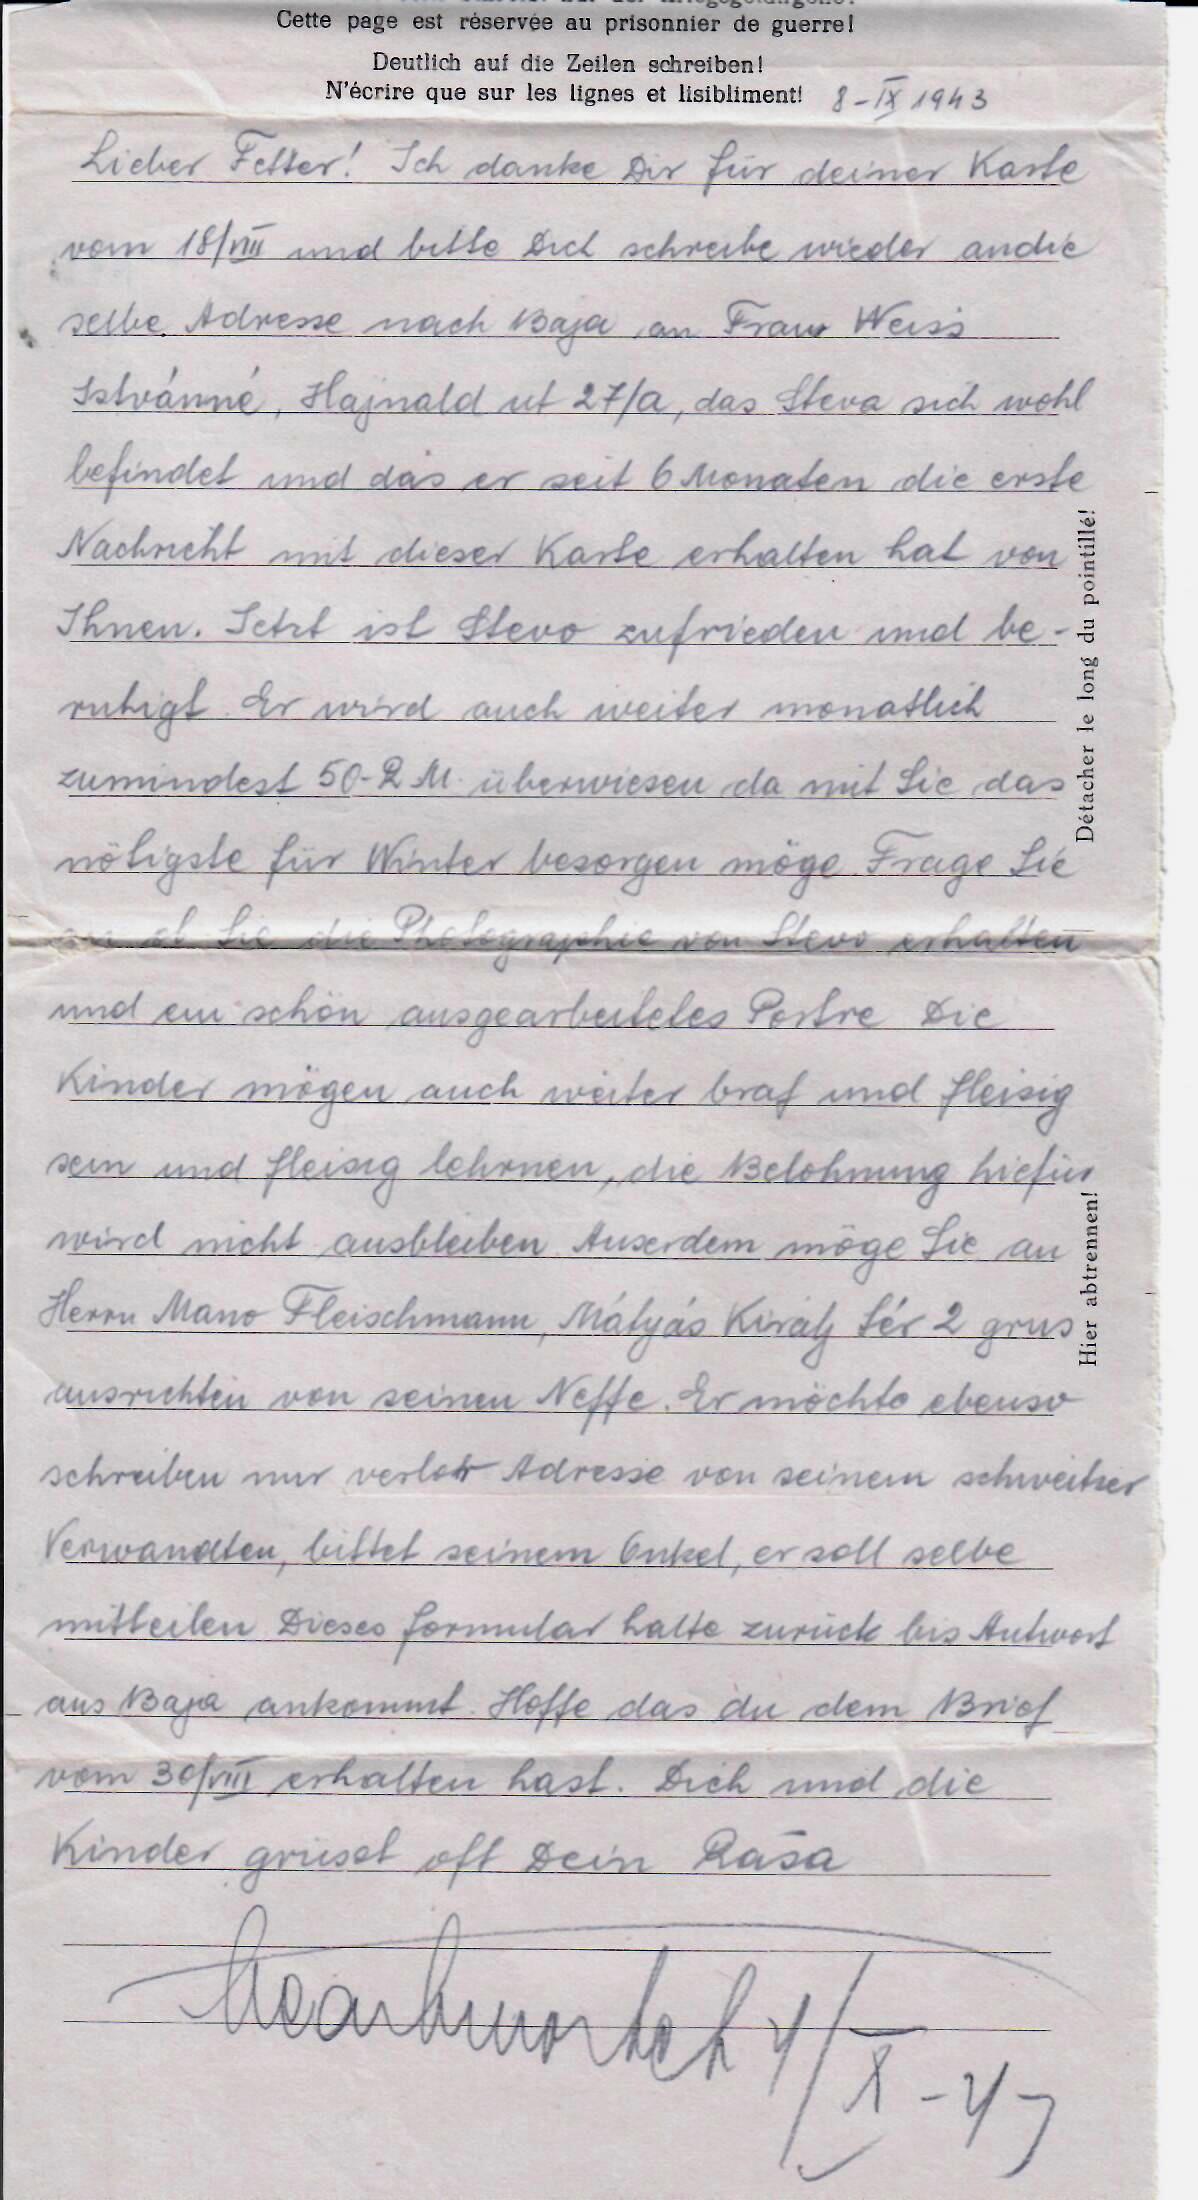 Cette page est réservée au prisonnier de guerre!
Deutlich auf die Zeilen schreiben!
N'écrire que sur les lignes et lisibliment! 8-IX 1943
Lieber Fetter! Ich danke Dir für deiner Karte
vom 18/VIII und bitte Dich schreibe wieder an die
selbe Adresse nach Baja an Frau Weiss
Istvánné, Hajnald ut 27/a, das Steva sich wohl
befindet und das er seit 6 Monaten die erste
Nachricht mit dieser Karte erhalten hat von
Ihnen. Jetzt ist Stevo zufrieden und be-
ruhigt. Er wird auch weiter monatlich
zumindest 50-RM. überwiesen da mit Sie das
nötigste für Winter besorgen möge. Frage Sie
an ob Sie die Photographie von Stevo erhalten
und ein schön ausgearbeitetes Portre Die
Kinder mögen auch weiter braf und fleisig
sein und fleisig lehrnen, die Belohnung hiefür
wird nicht ausbleiben. Auserdem möge Sie an
Herrn Mano Fleischmann, Mátyás Király tér 2 grus
ausrichten von seinen Neffe. Er möchte ebenso
schreiben nur verlor Adresse von seinem schweitzer
Verwandten, bittet seinem Onkel, er soll selbe
mitteilen Dieses formular halte zurück bis Antwort
aus Baja ankommt. Hoffe das du dem Brief
vom 30/VIII erhalten hast. Dich und die
Kinder grüset oft Dein Rasa
Beantwortet 4/X-43
Détacher le long du pointillé!
Hier abtrennen!